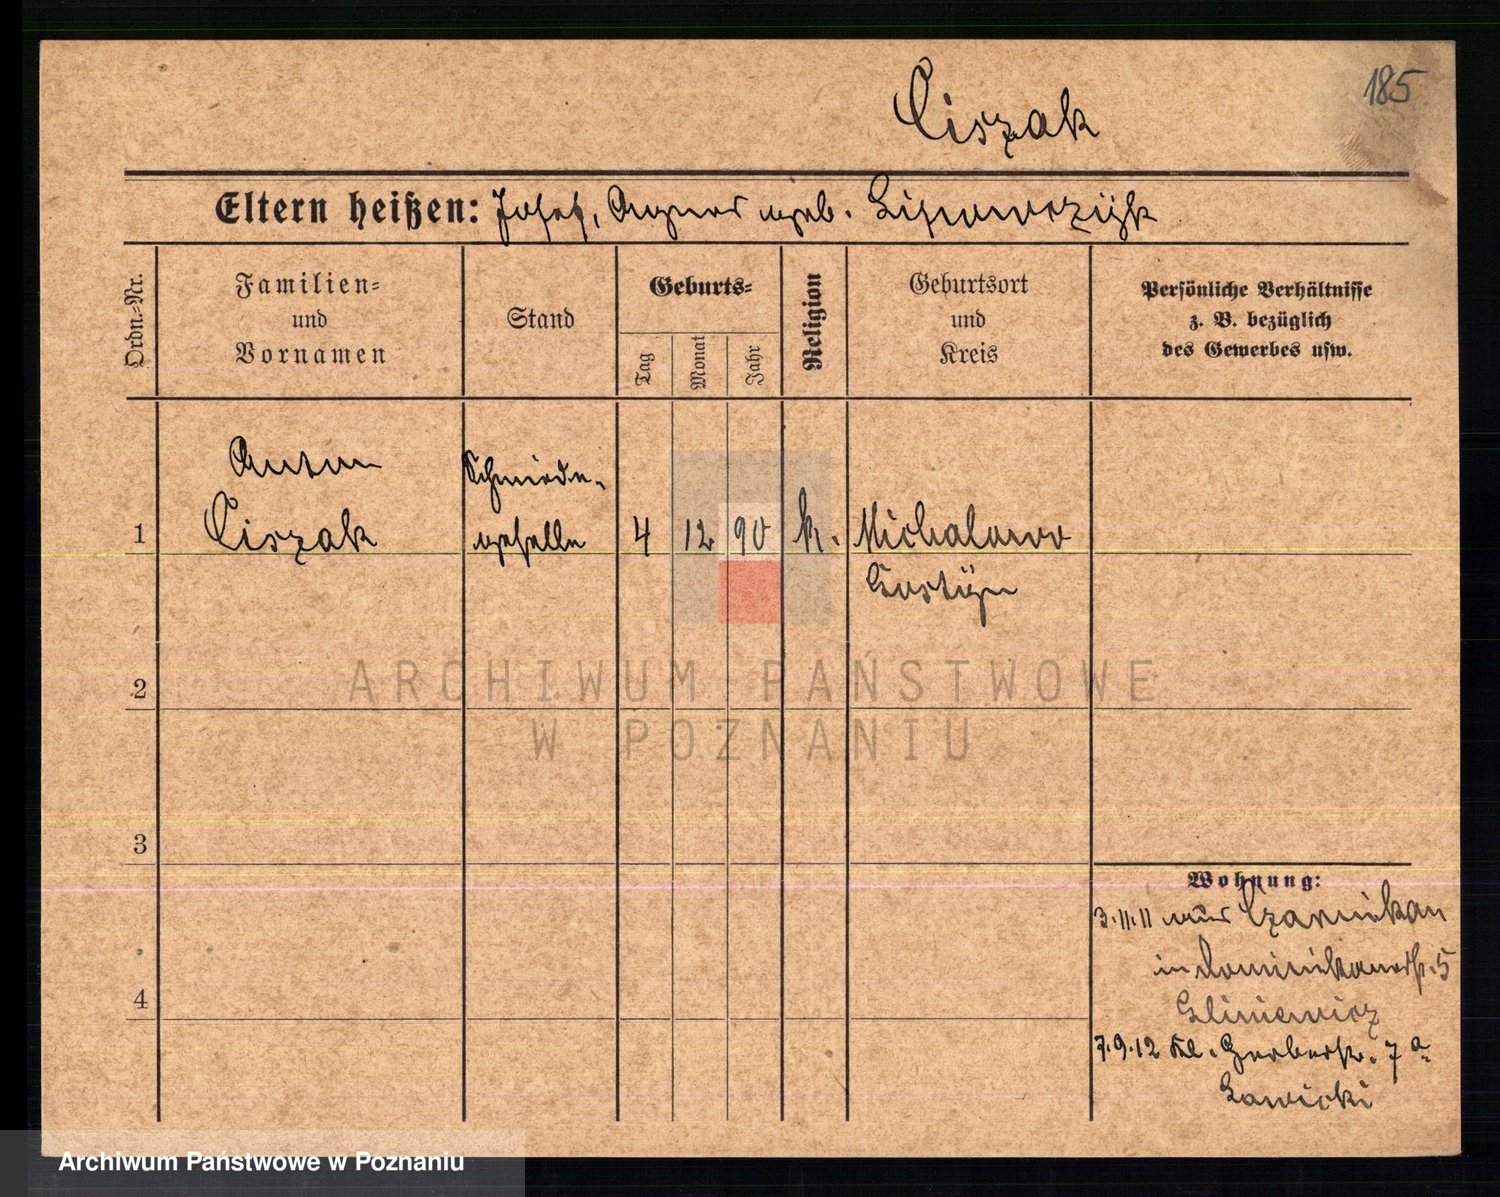 185
Ciszak
Eltern heißen: Josef, Agnes geb.
Ordn.-Nr.
Familien-
und
Vornamen
Stand
Geburts-
Tag
Monat
Jahr
Religion
Geburtsort
und
Kreis
Persönliche Verhältnisse
z. B. bezüglich
des Gewerbes usw.
Anton
Schmiede-
1 Ciszak geselle 4 12 90 k. Michalowo
Gostÿn
2
ARCHIWUM PAŃSTWOWE
W POZNANIU
3
Wohnung:
3.11.11 aus Czarnikau
in Dominikanerstr. 5
Gliniewicz
4
7.9.12 Kl. Gerberstr. 7 a
Lawicki
Archiwum Państwowe w Poznaniu